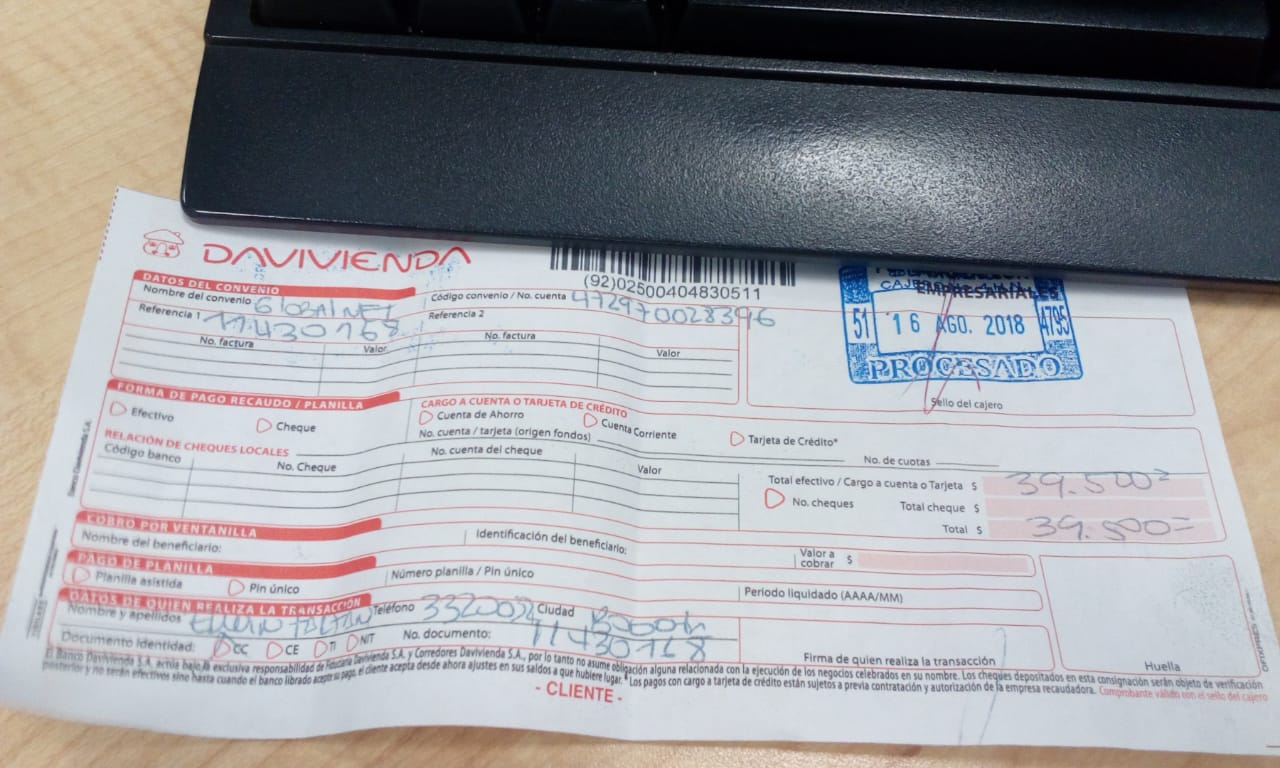 DAVIVIENDA
(92)02500404830511
DATOS DEL CONVENIO
Nombre del convenio GlobalNet Código convenio / No. cuenta 472970028396
Referencia 1 11.430168 Referencia 2
No. factura Valor No. factura Valor
EMPRESARIAL
51 16 AGO. 2018 4795
PROCESADO
Sello del cajero
FORMA DE PAGO RECAUDO / PLANILLA
Efectivo Cheque
CARGO A CUENTA O TARJETA DE CRÉDITO
Cuenta de Ahorro Cuenta Corriente Tarjeta de Crédito*
No. cuenta / tarjeta (origen fondos) No. de cuotas
RELACIÓN DE CHEQUES LOCALES
Código banco No. Cheque No. cuenta del cheque Valor
Total efectivo / Cargo a cuenta o Tarjeta $ 39.500=
No. cheques Total cheque $
Total $ 39.500=
COBRO POR VENTANILLA
Nombre del beneficiario: Identificación del beneficiario: Valor a cobrar $
PAGO DE PLANILLA
Planilla asistida Pin único Número planilla / Pin único Periodo liquidado (AAAA/MM)
DATOS DE QUIEN REALIZA LA TRANSACCIÓN
Nombre y apellidos Teléfono 3320032 Ciudad Bogota
Documento Identidad: CC CE TI NIT No. documento: 11430168
Firma de quien realiza la transacción Huella
El Banco Davivienda S.A. actúa bajo la exclusiva responsabilidad de Fiduciaria Davivienda S.A. y Corredores Davivienda S.A., por lo tanto no asume obligación alguna relacionada con la ejecución de los negocios celebrados en su nombre. Los cheques depositados en esta consignación serán objeto de verificación
posterior y no serán efectivos sino hasta cuando el banco librado acepte su pago, el cliente acepta desde ahora ajustes en sus saldos a que hubiere lugar. *Los pagos con cargo a tarjeta de crédito están sujetos a previa contratación y autorización de la empresa recaudadora. Comprobante válido con el sello del cajero
- CLIENTE -